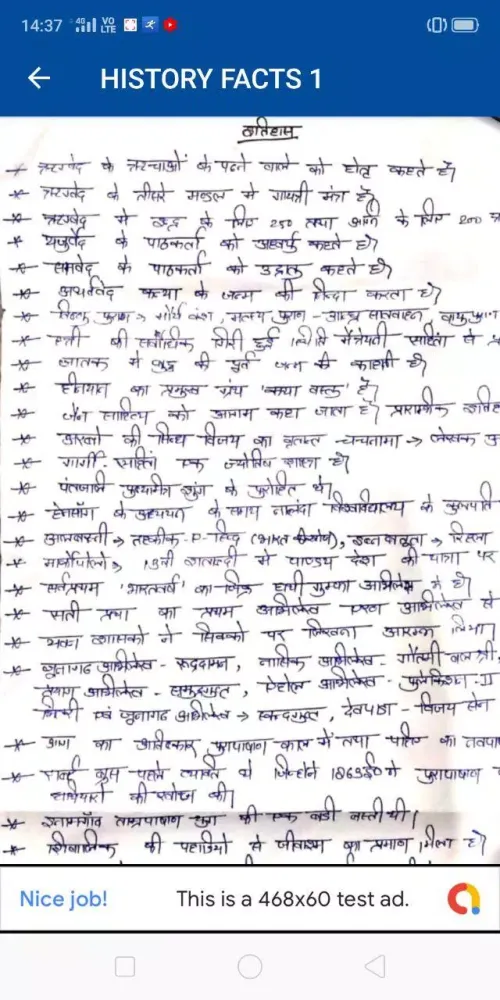 14:37 4G VO LTE
HISTORY FACTS 1
इतिहास
ऋग्वेद के ऋचाओं के पढ़ने वाले को होतृ कहते हैं।
ऋग्वेद के तीसरे मण्डल में गायत्री मंत्र है।
ऋग्वेद में इन्द्र के लिए 250 तथा अग्नि के लिए 200
यजुर्वेद के पाठकर्ता को अध्वर्यु कहते हैं।
सामवेद के पाठकर्ता को उद्गातृ कहते हैं।
अथर्ववेद कन्या के जन्म की निन्दा करता है।
विष्णु पुराण → मौर्य वंश, मत्स्य पुराण - आन्ध्र सातवाहन, वायु पुराण
स्त्री की सर्वाधिक गिरी हुई स्थिति मैत्रेयनी संहिता से
जातक में बुद्ध की पूर्व जन्म की कहानी है।
हीनयान का प्रमुख ग्रंथ 'कथा वस्तु' है।
जैन साहित्य को आगम कहा जाता है।
अरबों की सिन्ध विजय का वृतान्त चचनामा → लेखक
गार्गी संहिता एक ज्योतिष ग्रंथ है।
पंतजलि पुष्यमित्र शुंग के पुरोहित थे।
हेनसांग के अध्ययन के समय नालंदा विश्वविद्यालय के कुलपति
अलबरूनी → तहकीक-P-हिन्द (भारत की खोज), इब्न बतूता → रिहला
मार्कोपोलो → 13वी शताब्दी में पाण्ड्य देश की यात्रा पर
सर्वप्रथम 'भारतवर्ष' का जिक्र हाथी गुम्फा अभिलेख में है।
सती प्रथा का प्रथम अभिलेख एरण अभिलेख से
यवन शासकों ने सिक्कों पर लिखना आरम्भ किया।
जूनागढ़ अभिलेख - रुद्रदामन, नासिक अभिलेख - गौतमी बलश्री.
प्रयाग अभिलेख - समुद्रगुप्त, ऐहोल अभिलेख - पुलकेशिन-II
भितरी एवं जूनागढ़ अभिलेख → स्कन्दगुप्त, देवपाड़ा - विजय सेन
आग का आविष्कार पुरापाषाण काल में तथा पहिए का नवपा
राबर्ट ब्रूस पहले व्यक्ति थे जिन्होंने 1863ई० में पुरापाषाण
हथियारों की खोज की।
इनामगाँव ताम्रपाषाण युग की एक बड़ी बस्ती थी।
शिवालिक की पहाड़ियों से जीवाश्म का प्रमाण मिला है।
Nice job! This is a 468x60 test ad.